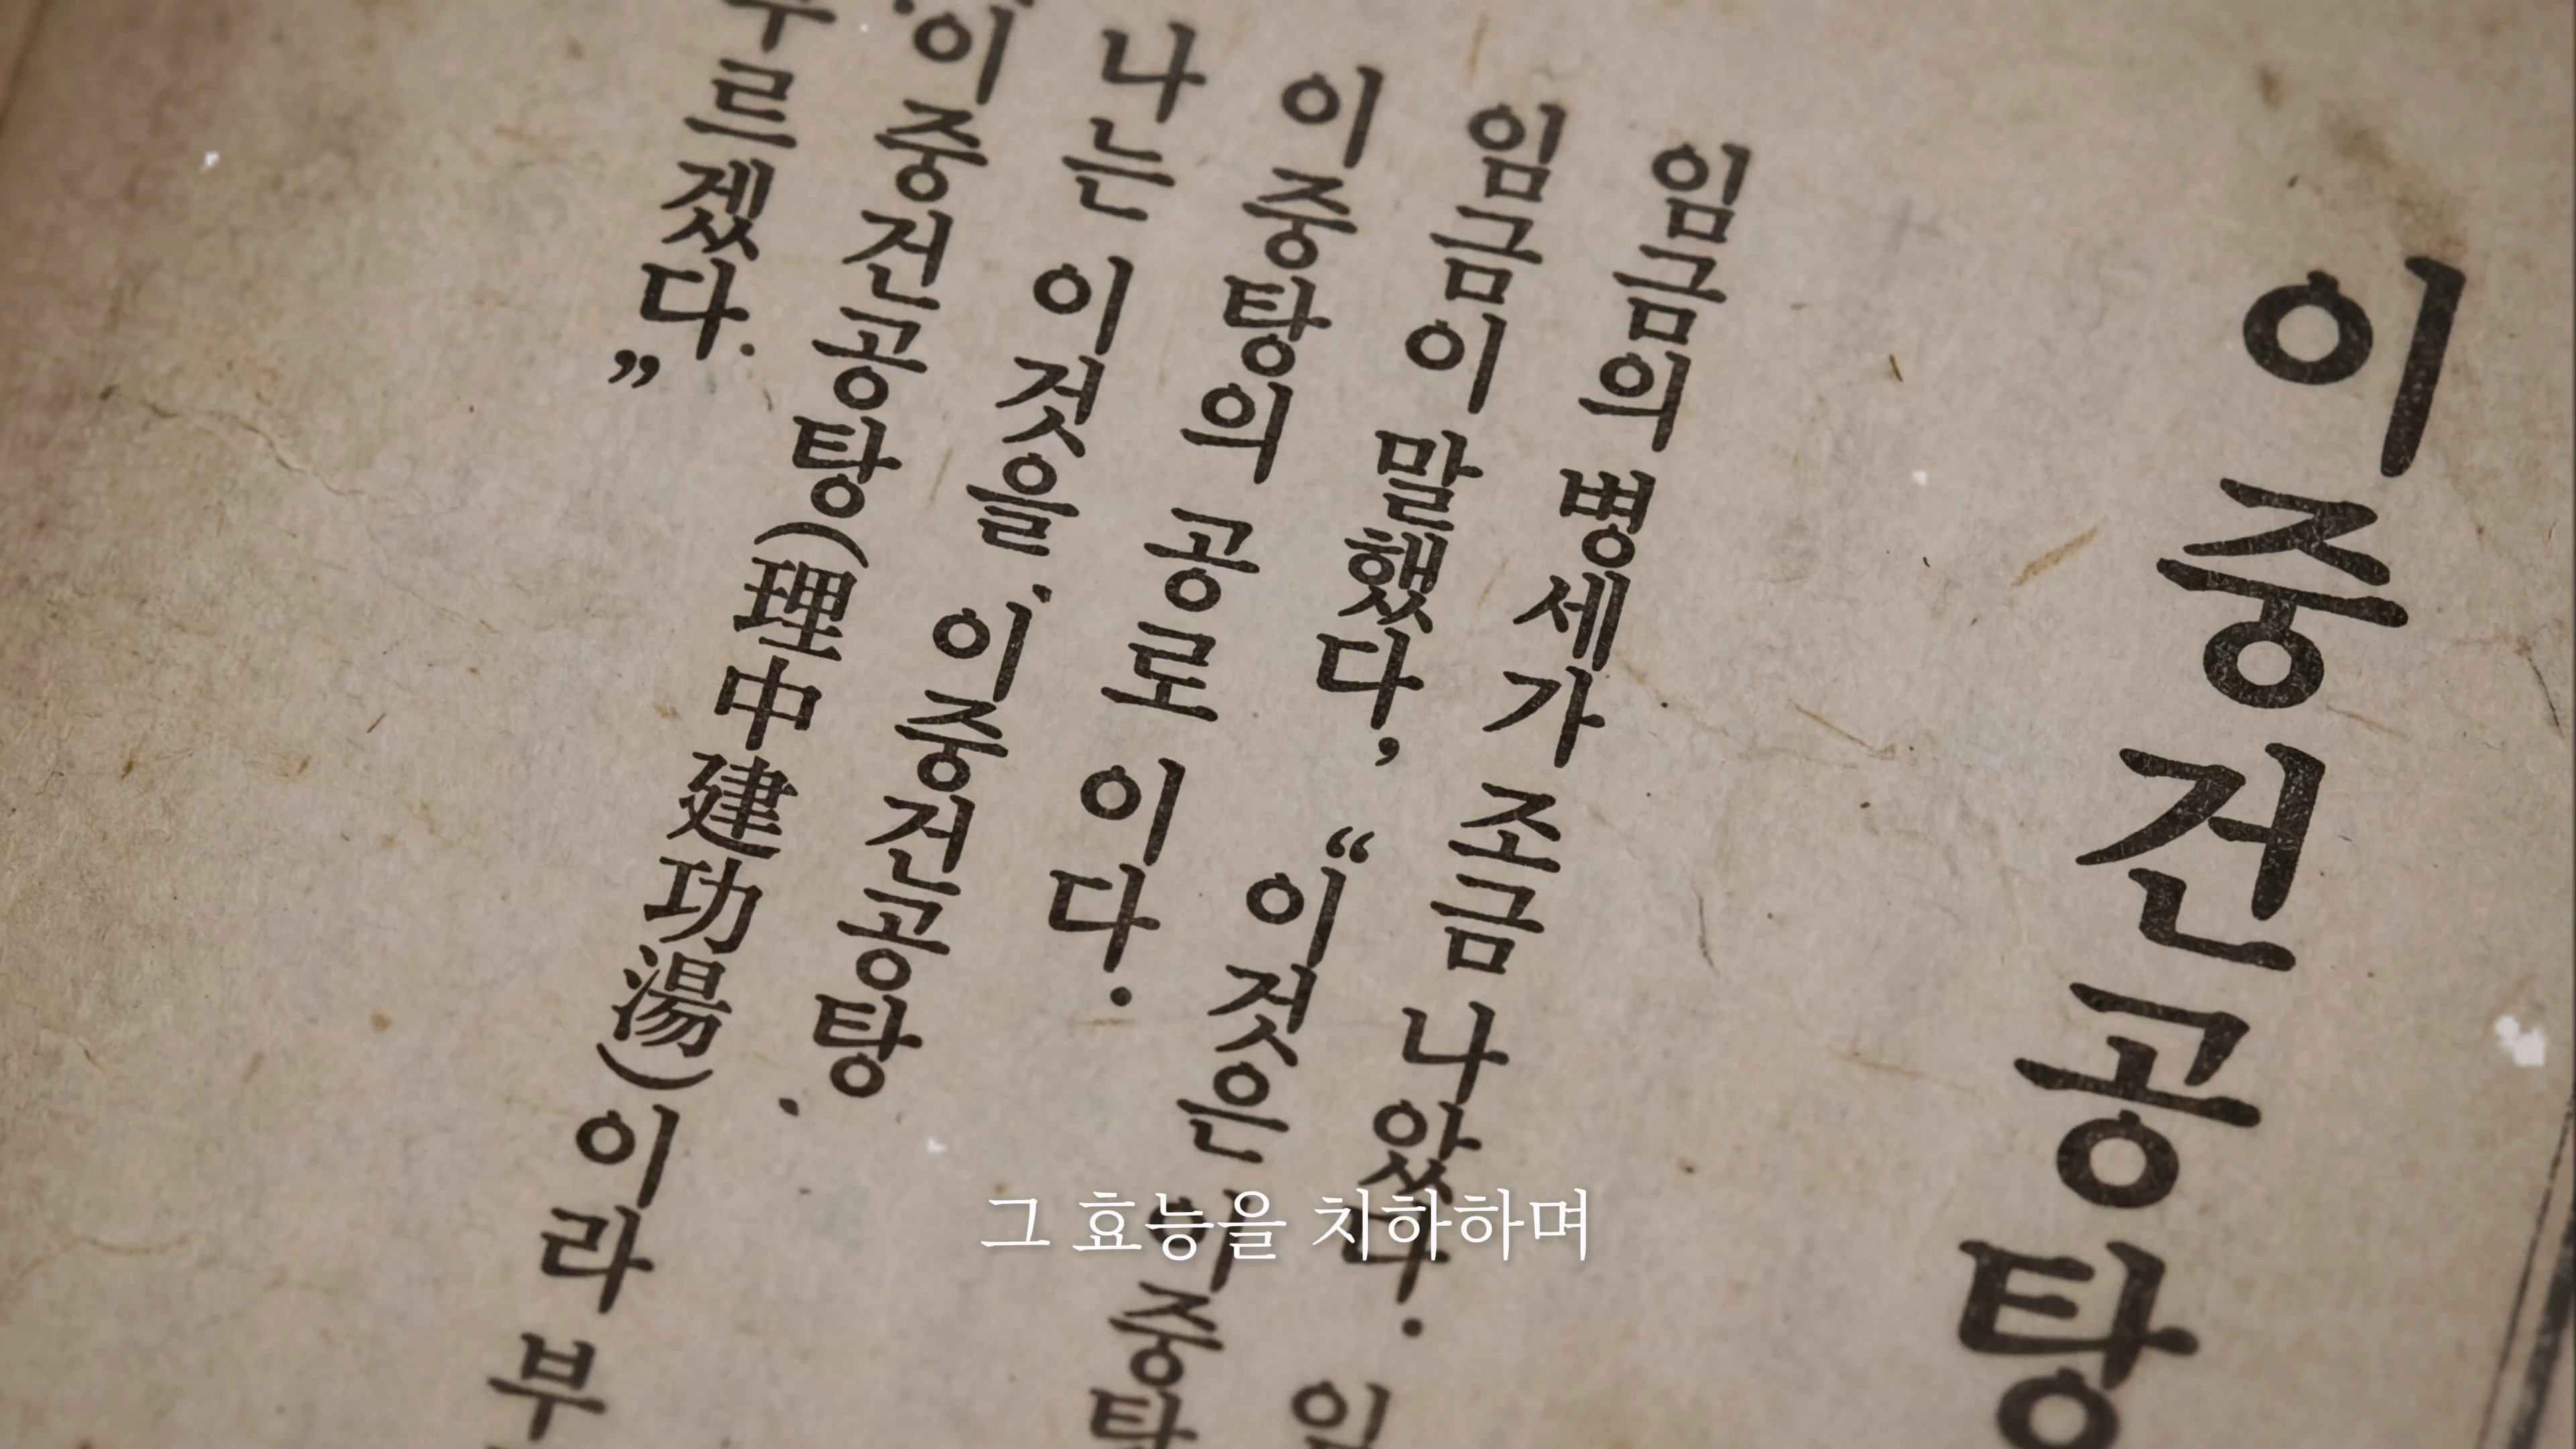 이중건공탕
임금의 병세가 조금 나았다. 임
임금이 말했다, “이것은 이중탕
이중탕의 공로 이다.
나는 이것을. 이중건공탕.
이중건공탕(理中建功湯)이라 부
르겠다.”
그 효능을 치하하며